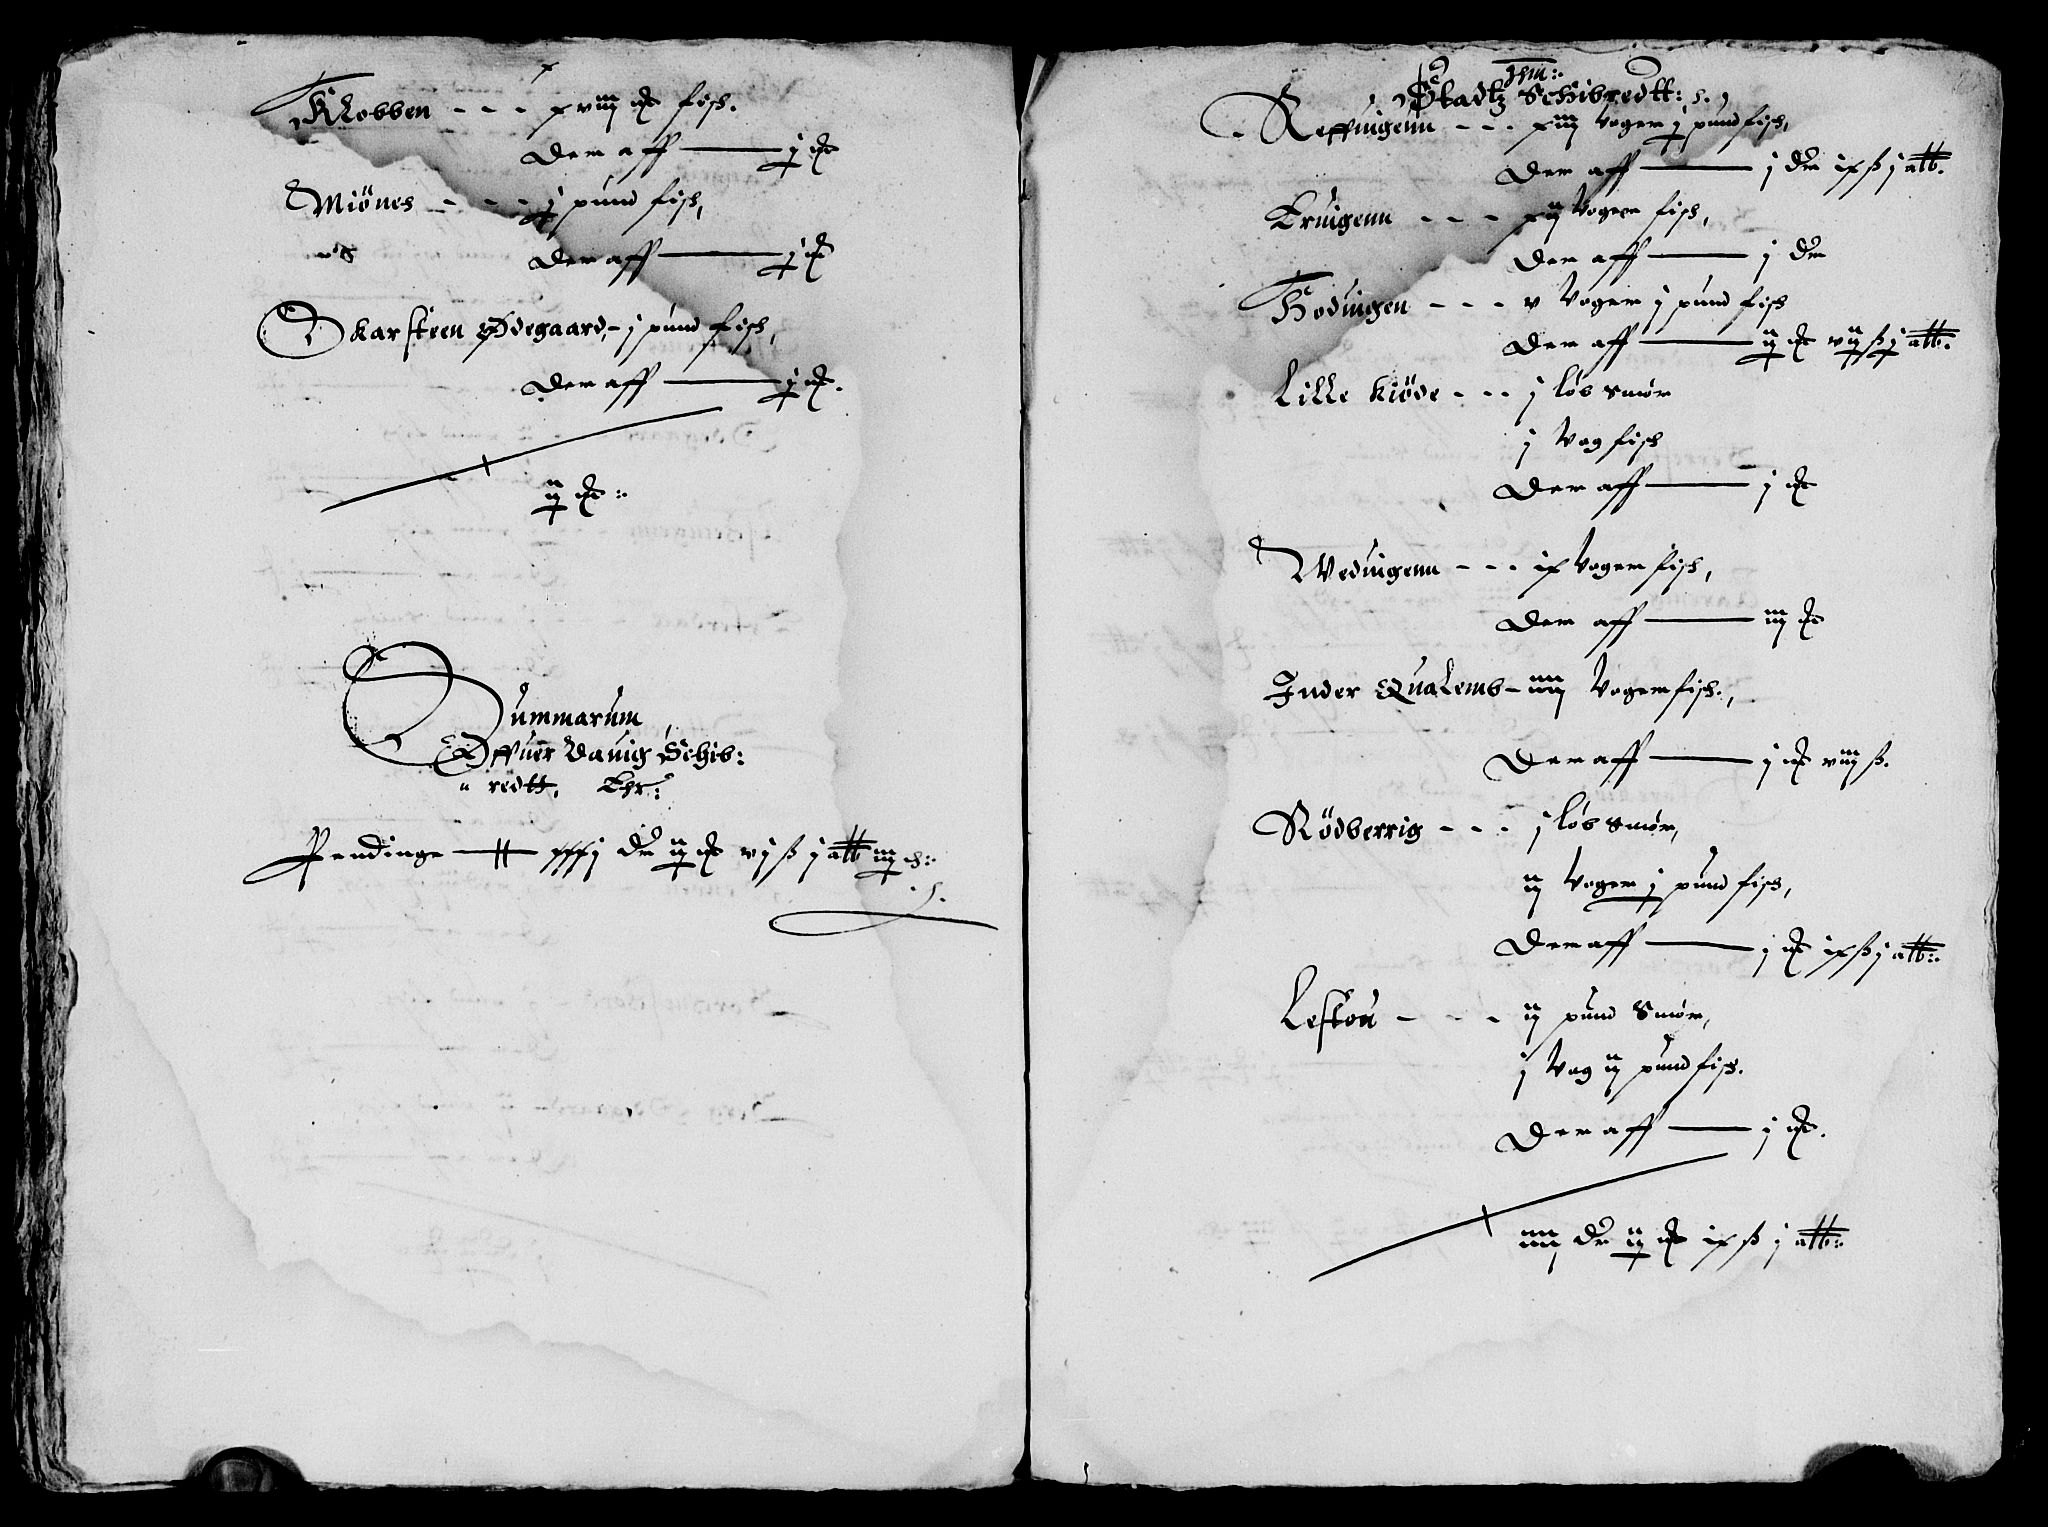 Klobben - - - xviij mk fisk.
Der aff — j mk
Miönes - - - j pund fisk,
Der aff — j mk
Skarsteen Ødegaard, - j pund fisk,
Der aff — j mk.
ij mk:
Summarum
Offuer Dauig Schib:
redtt,
Pendinge — xxxj dr ij mk vj ß j alb iij
Stadtz Schibredtt:
Reffuigenn - - - xiij voger j pund fisk,
Der aff — j dr ix ß j alb.
Eruigenn - - - xij voger fisk,
Der aff — j dr
Hoduigen - - - v voger j pund fisk
Der aff — ij mk vij ß j alb.
Lille Kiöde - - - j løb smør
j vog fisk
Der aff — j mk
Weduigenn - - - ix voger fisk,
Der aff — iij mk
Inder Qualemb - iiij voger fisk.,
Der aff — j mk viij ß.
Rödberrig - - - j løb smør,
ij voger j pund fisk,
Der aff — j mk ix ß j alb:
Lestou - - - ij pund smør,
j vog ij pund fisk.
Der aff — j mk.
iiij dr ij mk ix ß j alb: